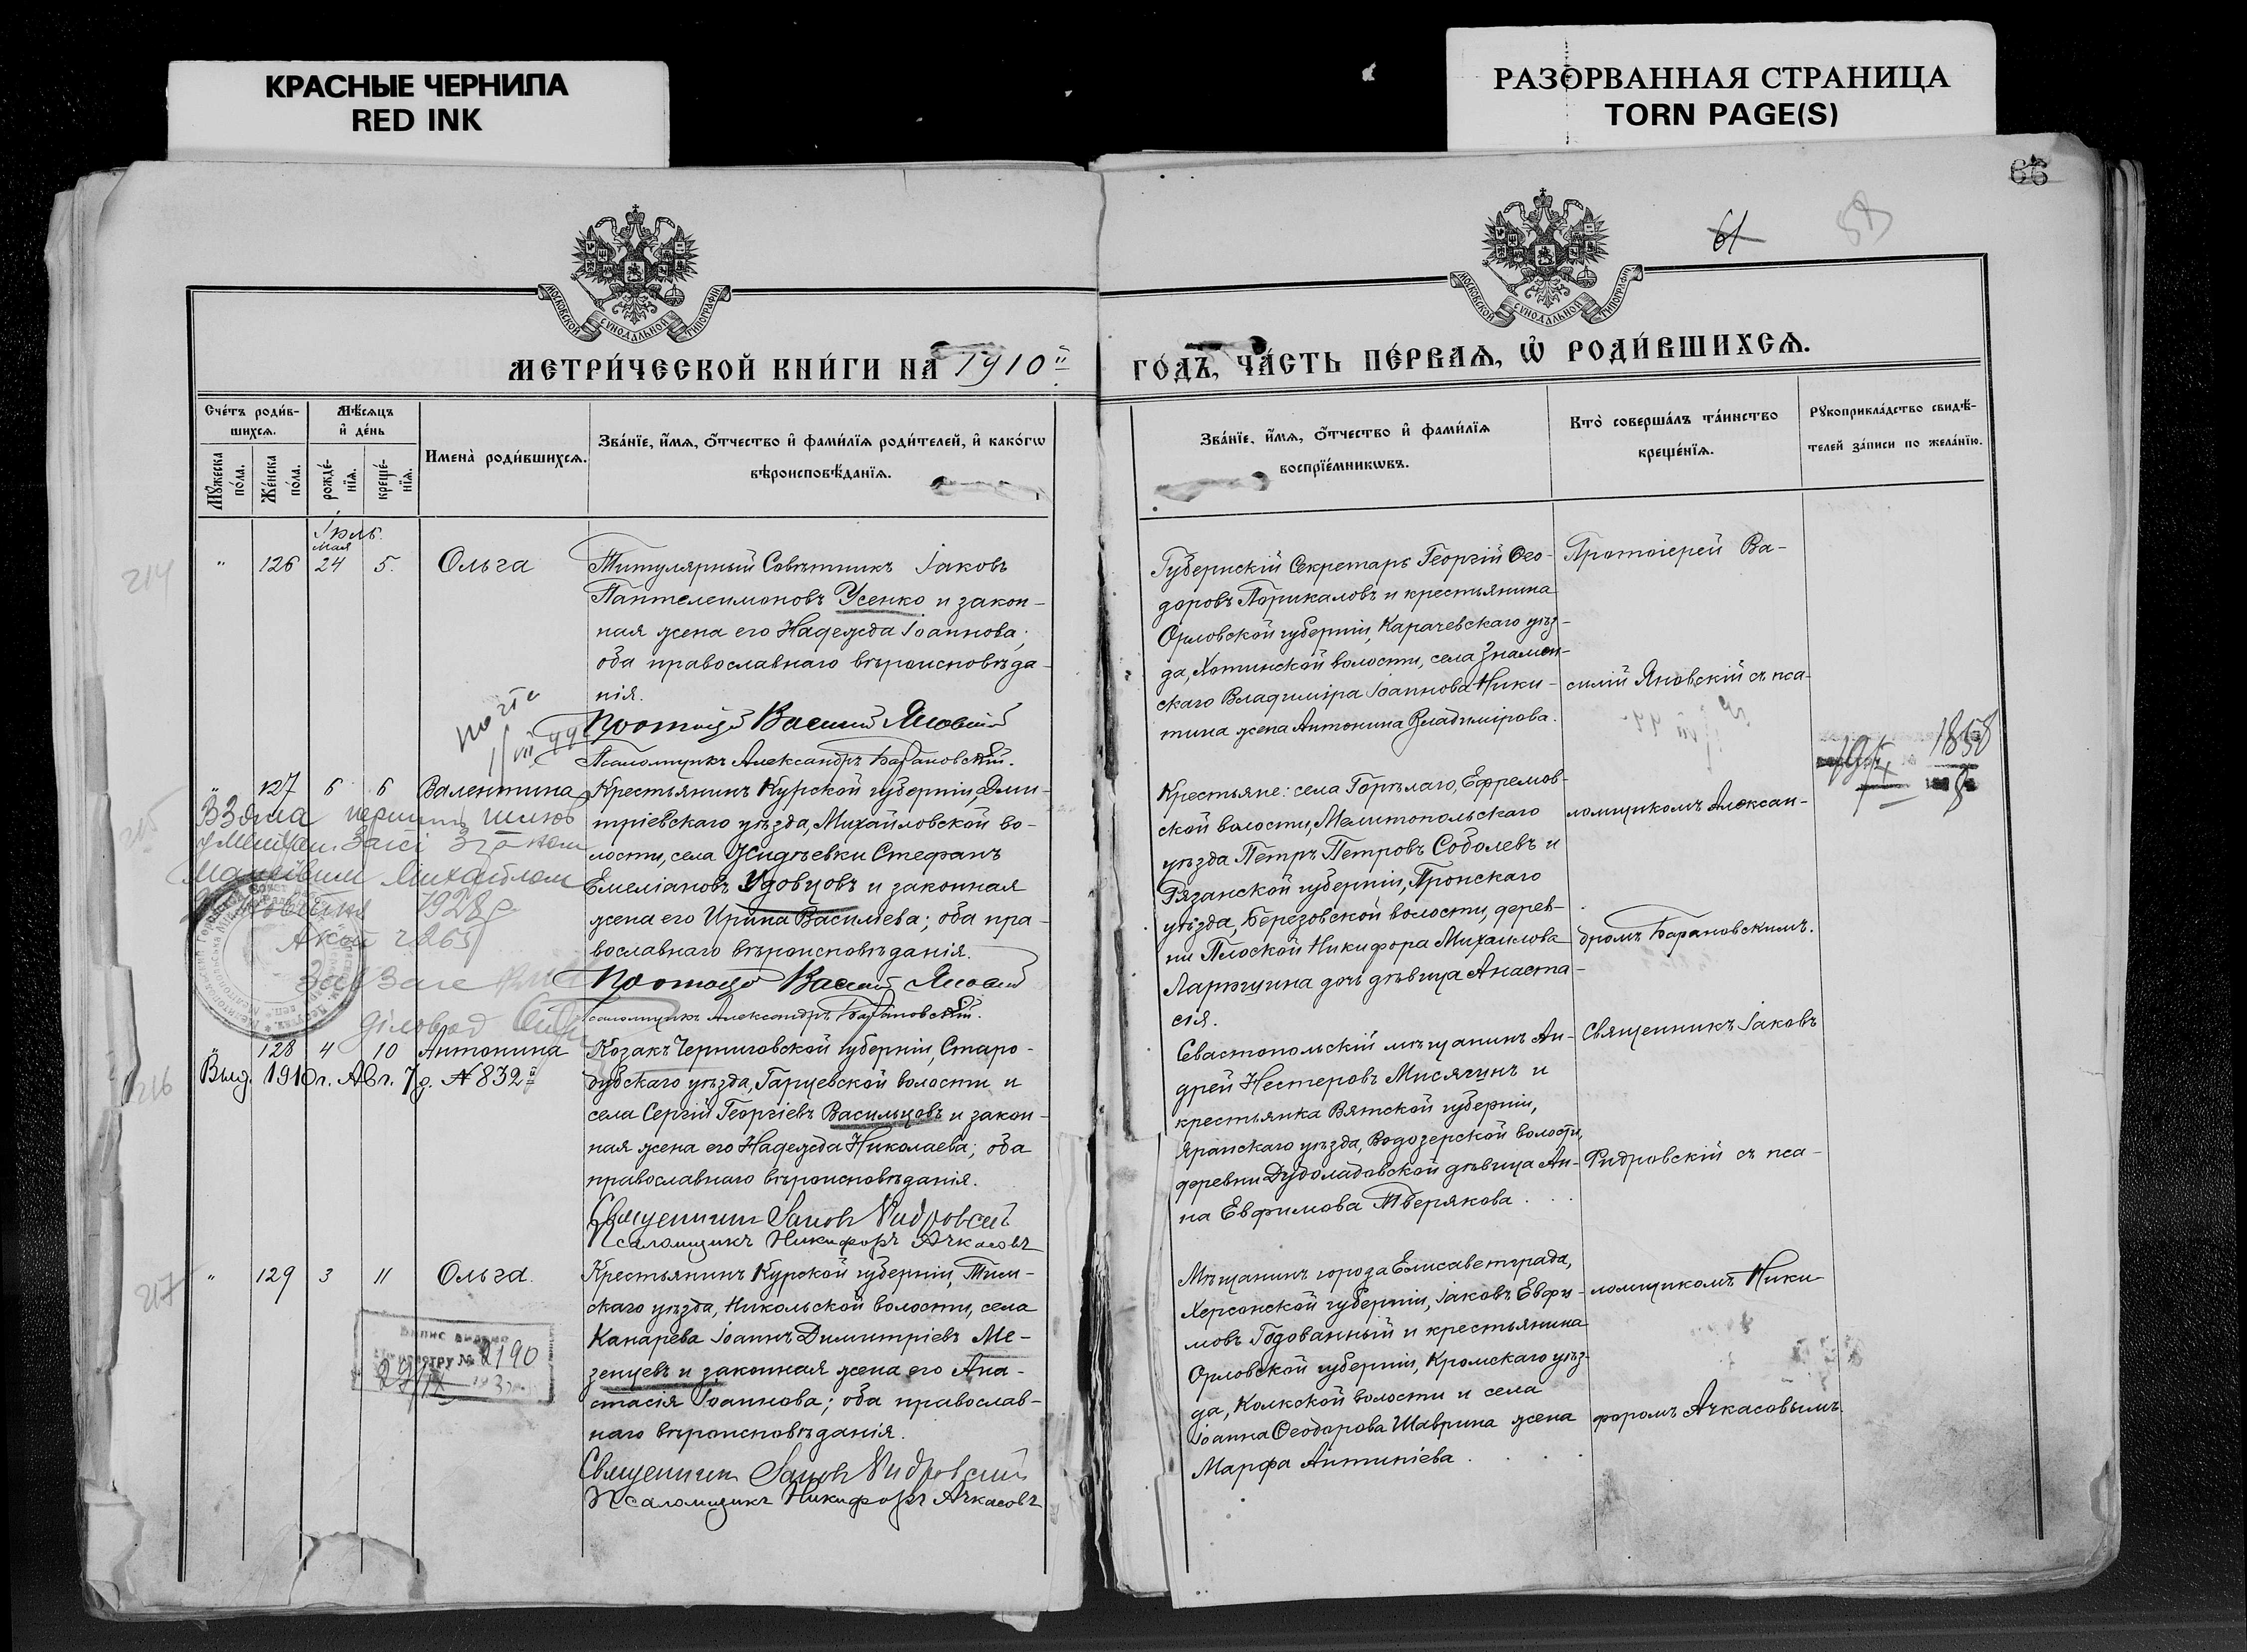 КРАСНЫЕ ЧЕРНИЛА
RED INK
РАЗОРВАННАЯ СТРАНИЦА
TORN PAGE(S)
66
61
59
МОСКОВСКОЙ СУНОДАЛЬНОЙ ТИПОГРАФІИ
МОСКОВСКОЙ СУНОДАЛЬНОЙ ТИПОГРАФІИ
МЕТРИ́ЧЕСКОЙ КНИ́ГИ НА 1910й
ГО́ДЪ, ЧА́СТЬ ПЕ́РВАѦ, Ѡ҆ РОДИ́ВШИХСѦ.
Сче́тъ роди́вшихсѧ.
Мꙋ́жеска по́ла.
Же́нска по́ла.
Мѣ́сѧцъ и҆ де́нь
рожде́нїѧ.
креще́нїѧ.
Имена̀ роди́вшихсѧ.
Зва́нїе, и҆́мѧ, ѻ҆́тчество и҆ фами́лїѧ роди́телей, и҆ како́гѡ
вѣроисповѣ́данїѧ.
Зва́нїе, и҆́мѧ, ѻ҆́тчество и҆ фами́лїѧ
воспрїе́мникѡвъ.
Кто̀ соверша́лъ та́инство
креще́нїѧ.
Рꙋкоприкла́дство свидѣ́-
телей за́писи по жела́нїю.
Іюль.
Мая
214
" 126 24 5. Ольга
Титулярный Совѣтникъ Іаковъ
Пантелеимоновъ Усенко и закон-
ная жена его Надежда Іоаннова;
оба православнаго вѣроисповѣда-
нія.
Протоіерей Василій Яновскій
Псаломщикъ Александръ Барановскій.
Губернскій Секретарь Георгій Ѳео-
доровъ Порикаловъ и крестьянина
Орловской губерніи, Карачевскаго уѣз-
да, Хотинской волости, села Знамен-
скаго Владиміра Іоаннова Ники-
тина жена Антонина Владимірова.
Протоіерей Ва-
силій Яновскій съ пса-
ломщикомъ Алексан-
дромъ Барановскимъ.
215
" 127 6 6 Валентина
Крестьянинъ Курской губерніи, Дми-
тріевскаго уѣзда, Михайловской во-
лости, села Жидѣевки Стефанъ
Емеліановъ Удовцовъ и законная
жена его Ирина Васильева; оба пра-
вославнаго вѣроисповѣданія.
Протоіерей Василій Яновскій
Псаломщикъ Александръ Барановскій.
Михайлом
1928 р
Крестьяне: села Горѣлаго, Ефремов-
ской волости, Мелитопольскаго
уѣзда Петръ Петровъ Соболевъ и
Рязанской губерніи, Пронскаго
уѣзда, Березовской волости, дерев-
ни Плоской Никифора Михаилова
Ларюшина дочь дѣвица Анаста-
сія.
1858
216
" 128 4 10 Антонина
Выд. 1910 г. Авг. 7 д. № 832й
Козакъ Черниговской губерніи, Старо-
дубскаго уѣзда, Гарцевской волости и
села Сергій Георгіевъ Васильцовъ и закон-
ная жена его Надежда Николаева; оба
православнаго вѣроисповѣданія.
Священникъ Іаковъ Фидровскій
Псаломщикъ Никифоръ Ачкасовъ
Севастопольскій мѣщанинъ Ан-
дрей Нестеровъ Мисягинъ и
крестьянка Вятской губерніи,
Яранскаго уѣзда, Водозерской волости,
деревни Дудоладовской дѣвица Ан-
на Евфимова Тверякова.
Священникъ Іаковъ
Фидровскій съ пса-
ломщикомъ Ники-
форомъ Ачкасовымъ.
217
" 129 3 11 Ольга.
Крестьянинъ Курской губерніи, Тим-
скаго уѣзда, Никольской волости, села
Канарева Іоаннъ Димитріевъ Ме-
зенцевъ и законная жена его Ана-
стасія Іоаннова; оба православ-
наго вѣроисповѣданія.
Священникъ Іаковъ Фидровскій
Псаломщикъ Никифоръ Ачкасовъ
№ 2190
Мѣщанинъ города Елисаветграда,
Херсонской губерніи, Іаковъ Евфи-
мовъ Годованный и крестьянина
Орловской губерніи, Кромскаго уѣз-
да, Колкской волости и села
Іоанна Ѳеодорова Шаврина жена
Марфа Антипіева.